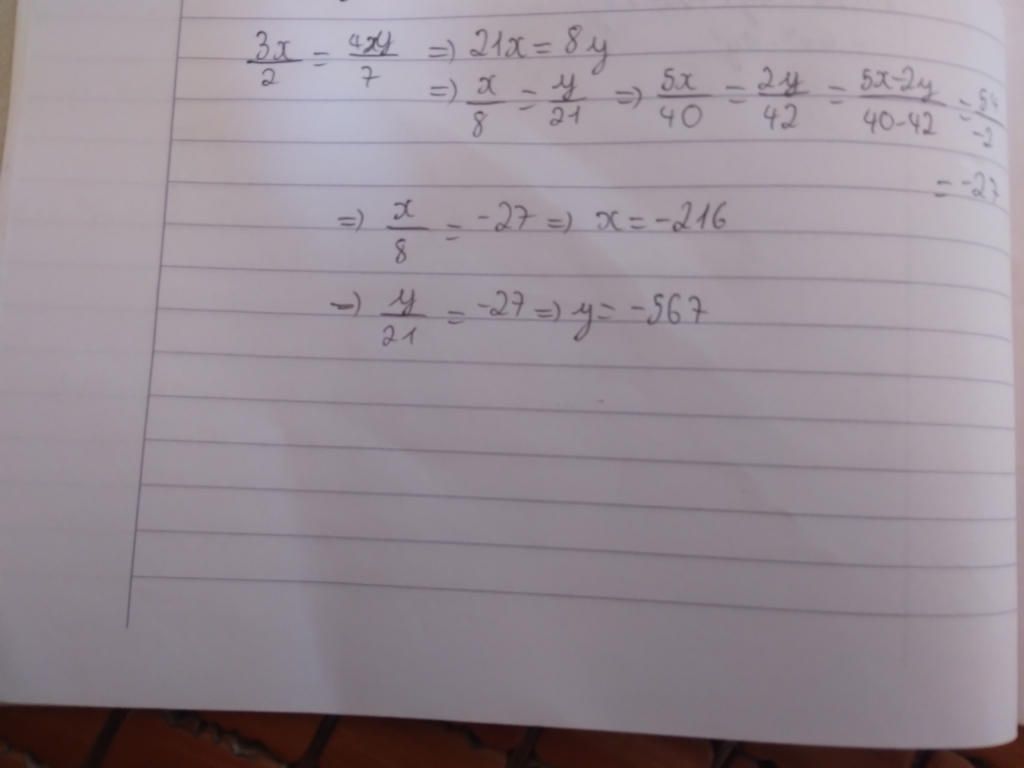 3x/2 = 4xy/7 => 21x = 8y
=> x/8 = y/21 => 5x/40 = 2y/42 = 5x-2y/40-42 = 54/-2
= -27
=> x/8 = -27 => x = -216
=> y/21 = -27 => y = -567